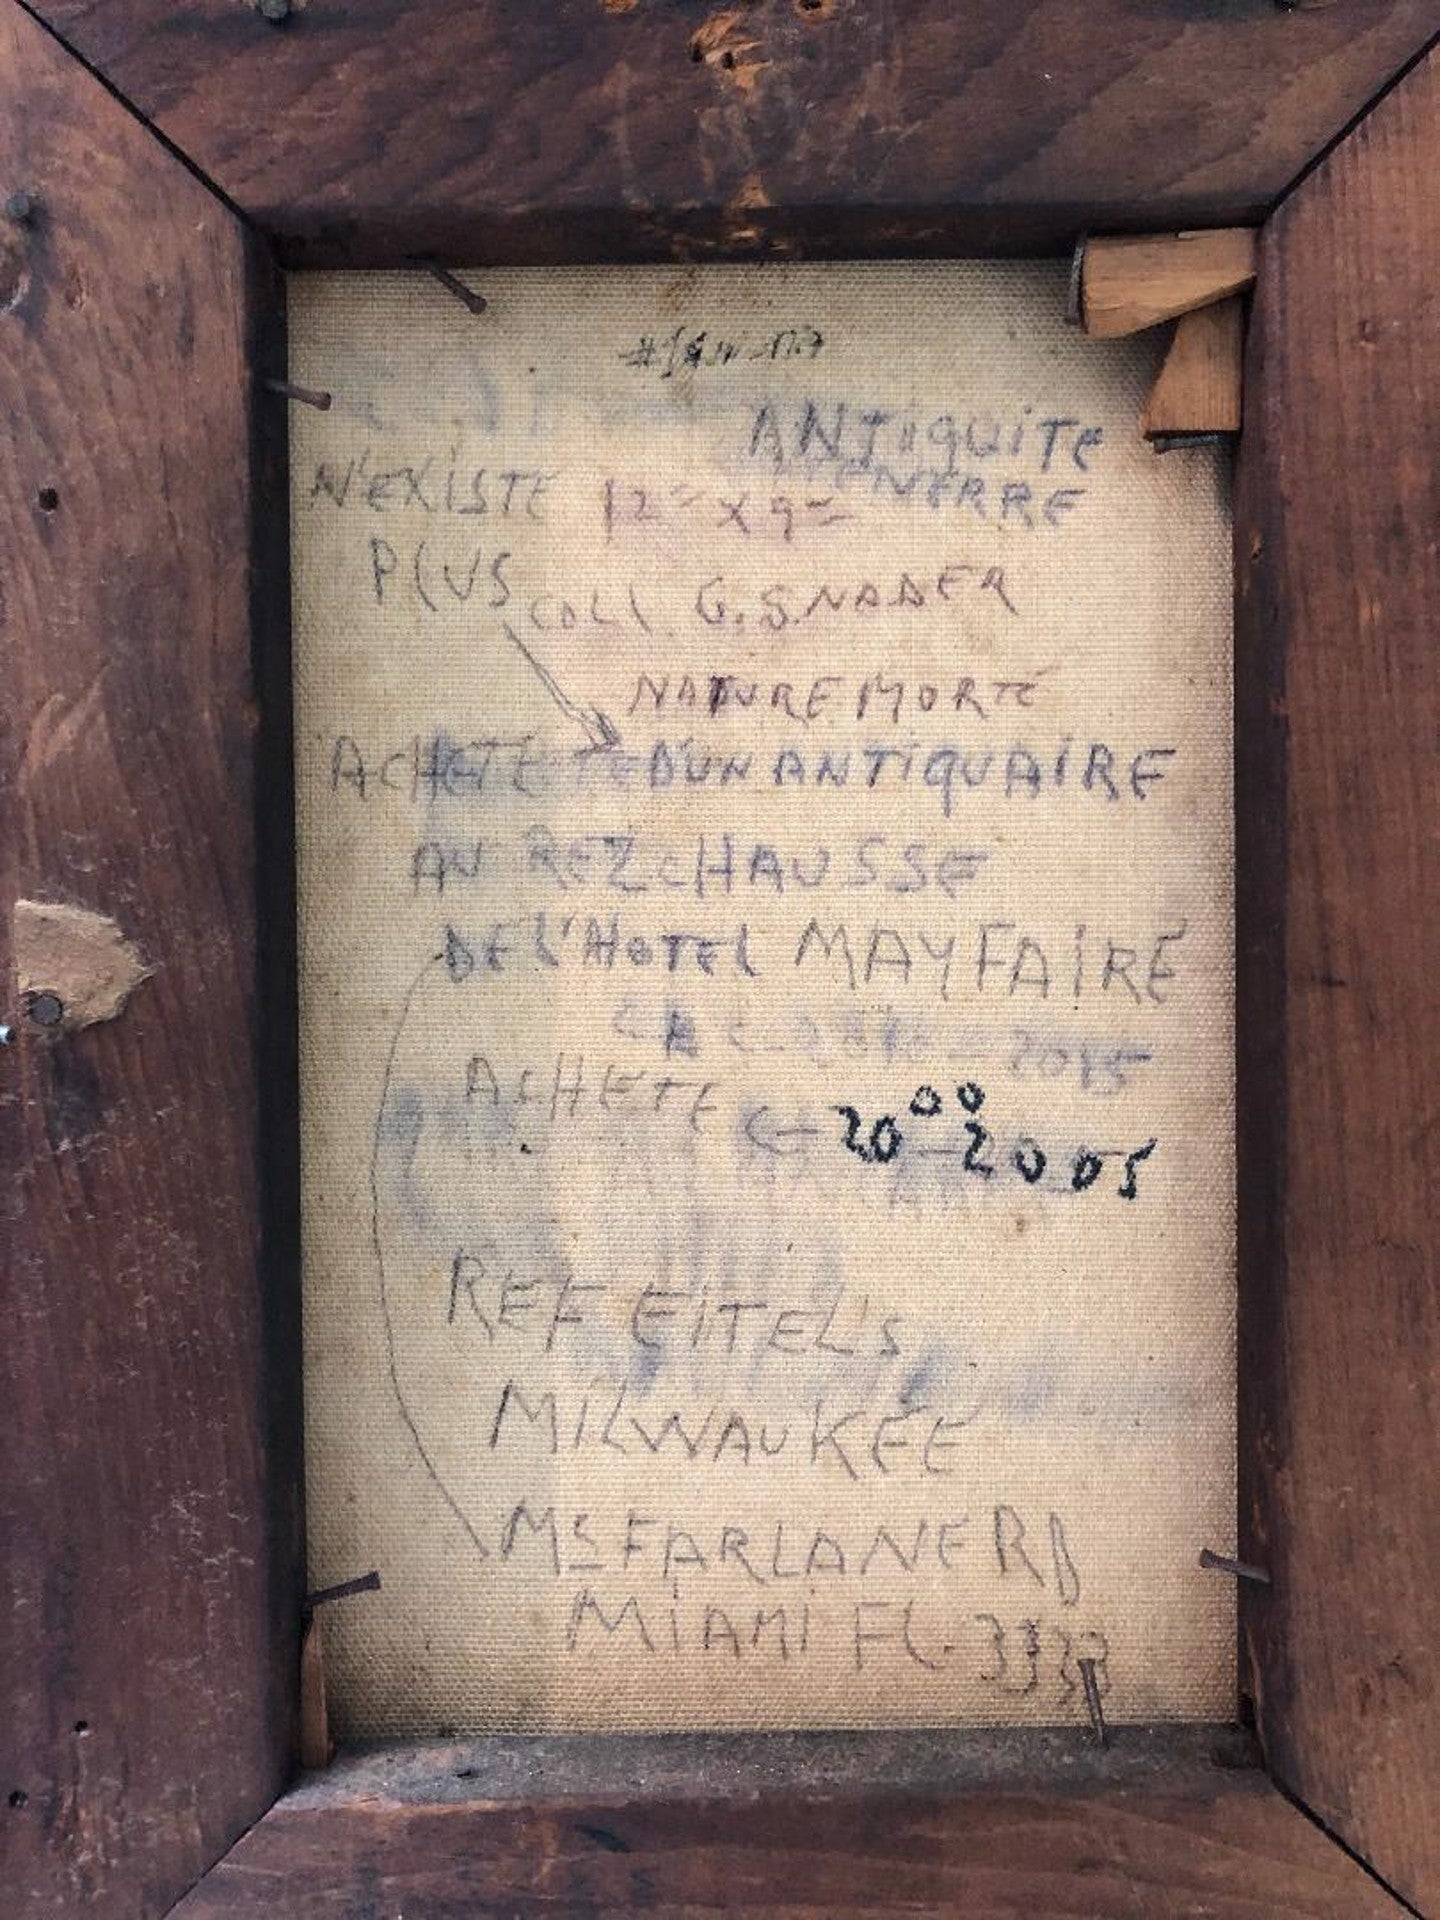 ANTIQUITE
N'EXISTE 12" x 9"
PLUS
COLL. G. S. NADER
NATURE MORTE
ACHETE D'UN ANTIQUAIRE
AU REZ CHAUSSE
DE L'HOTEL MAYFAIRE
2015
ACHETE 20⁰⁰ 2005
REF EITEL'S
MILWAUKEE
McFARLANE RD
MIAMI FL. 3333